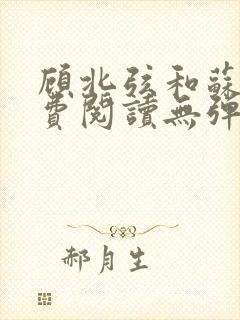 顾北弦和蘇
費閱讀無彈
郝月生